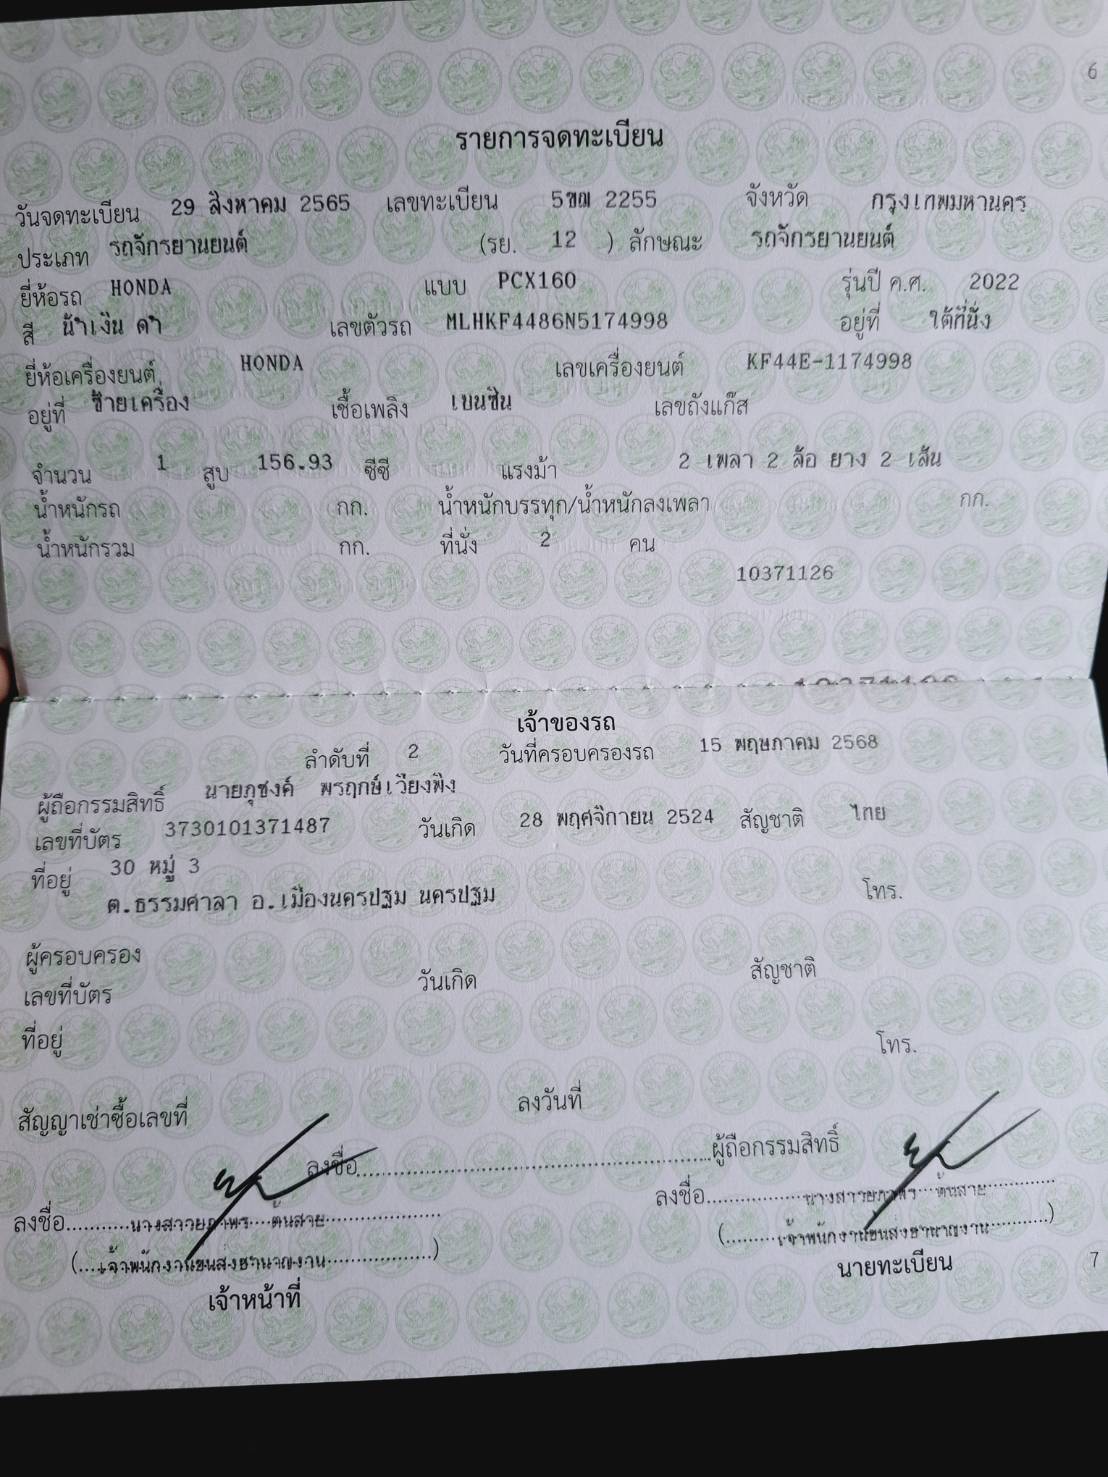 6
รายการจดทะเบียน
วันจดทะเบียน 29 สิงหาคม 2565 เลขทะเบียน 5ขฌ 2255 จังหวัด กรุงเทพมหานคร
ประเภท รถจักรยานยนต์ (รย. 12 ) ลักษณะ รถจักรยานยนต์
ยี่ห้อรถ HONDA แบบ PCX160 รุ่นปี ค.ศ. 2022
สี น้ำเงิน ดำ เลขตัวรถ MLHKF4486N5174998 อยู่ที่ ใต้ที่นั่ง
ยี่ห้อเครื่องยนต์ HONDA เลขเครื่องยนต์ KF44E-1174998
อยู่ที่ ซ้ายเครื่อง เชื้อเพลิง เบนซิน เลขถังแก๊ส
จำนวน 1 สูบ 156.93 ซีซี แรงม้า 2 เพลา 2 ล้อ ยาง 2 เส้น
น้ำหนักรถ กก. น้ำหนักบรรทุก/น้ำหนักลงเพลา กก.
น้ำหนักรวม กก. ที่นั่ง 2 คน
10371126
เจ้าของรถ
ลำดับที่ 2 วันที่ครอบครองรถ 15 พฤษภาคม 2568
ผู้ถือกรรมสิทธิ์ นายภุชงค์ พรฤกษ์เวียงพิง
เลขที่บัตร 3730101371487 วันเกิด 28 พฤศจิกายน 2524 สัญชาติ ไทย
ที่อยู่ 30 หมู่ 3
ต.ธรรมศาลา อ.เมืองนครปฐม นครปฐม โทร.
ผู้ครอบครอง
เลขที่บัตร วันเกิด สัญชาติ
ที่อยู่ โทร.
สัญญาเช่าซื้อเลขที่ ลงวันที่
ลงชื่อ ผู้ถือกรรมสิทธิ์
ลงชื่อ นางสาวยุภาพร ต้นสาย ลงชื่อ นางสาวยุภาพร ต้นสาย
(เจ้าพนักงานขนส่งชำนาญงาน) (เจ้าพนักงานขนส่งชำนาญงาน)
เจ้าหน้าที่ นายทะเบียน
7